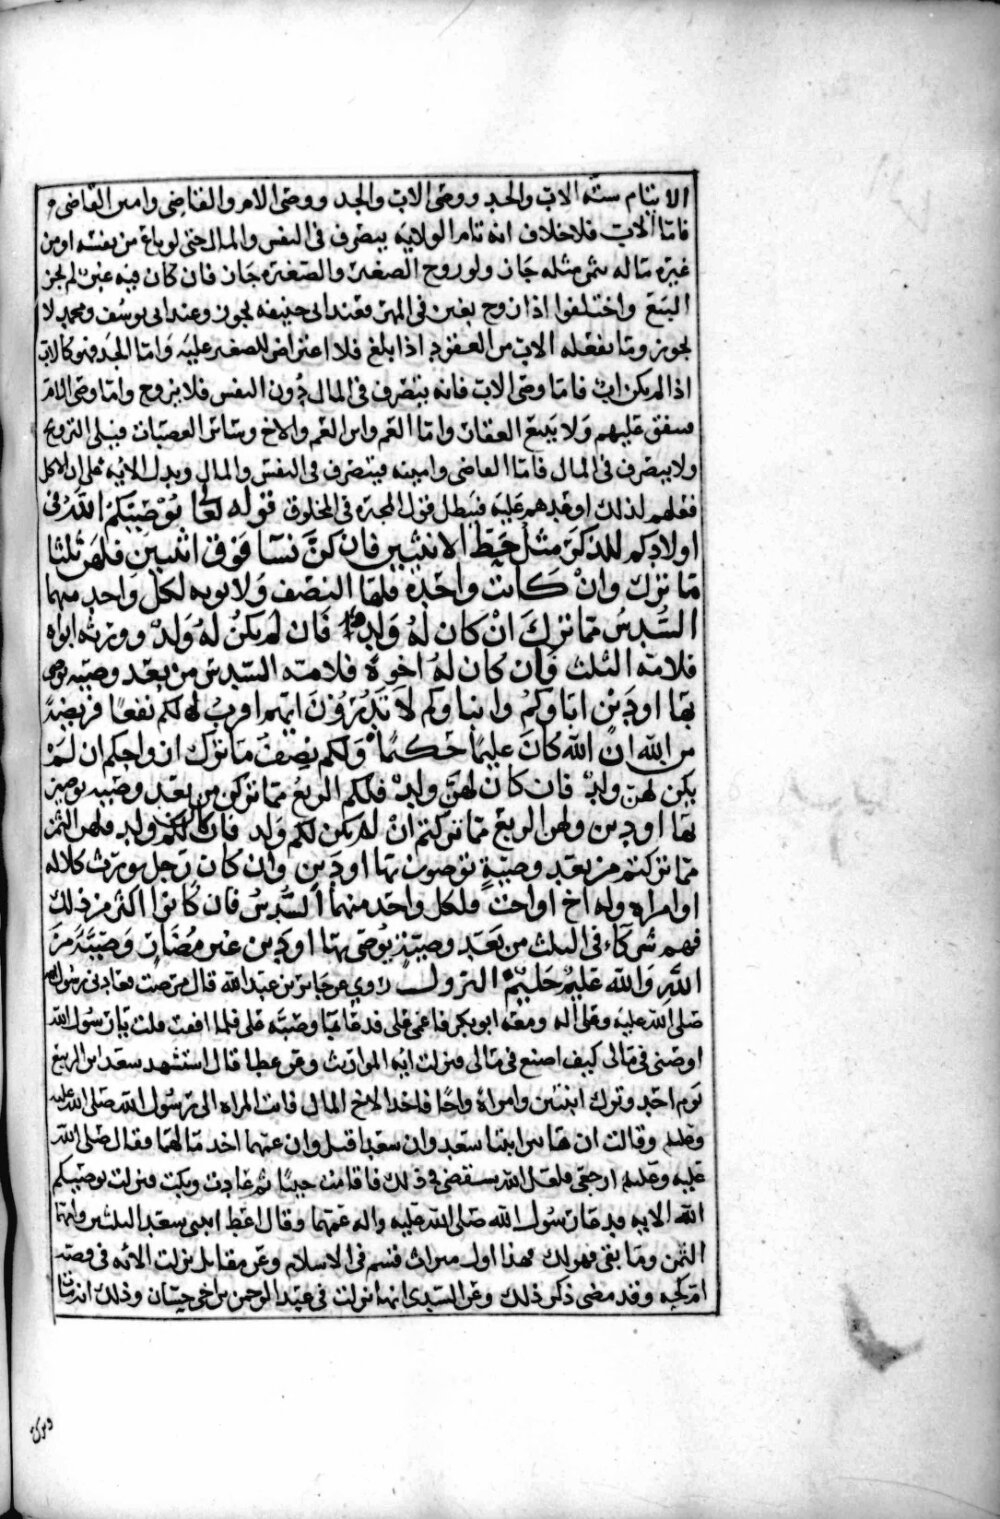 الايتام ستة الاب والجد ووصى الاب والجد ووصى الام والقاضى وامين القاضى
فاما الاب فلا خلاف انه تام الولايه يتصرف فى النفس والمال حتى لو باع من نفسه او من
غيره ماله بثمن مثله جاز ولو زوج الصغير والصغيره جاز فان كان فيه غبن لم يجز
البيع واختلفوا اذا زوج بغبن فى المهر فعند ابى حنيفه يجوز وعند ابى يوسف ومحمد لا
يجوز وما يفعله الاب من العقود اذا بلغ فلا اعتراض للصغير عليه واما الجد فهو كالاب
اذا لم يكن اب فاما وصى الاب فانه يتصرف فى المال دون النفس فلا يزوج واما وصى الام
فينفق عليهم ولا يبيع العقار واما العم وابن العم والاخ وسائر العصبات فيلى التزويج
ولا يتصرف فى المال فاما القاضى وامينه فيتصرف فى النفس والمال ويدل الايه على ان الاكل
فعلهم لذلك اوعدهم عليه فيبطل قول المجبره فى المخلوق قوله تعالى يوصيكم الله فى
اولادكم للذكر مثل حظ الانثيين فان كن نسآ فوق اثنتين فلهن ثلثا
ما ترك وان كانت واحده فلها النصف ولابويه لكل واحد منهما
السدس مما ترك ان كان له ولد فان لم يكن له ولد وورثه ابواه
فلامه الثلث فان كان له اخوة فلامه السدس من بعد وصيه يوصى
بها او دين اباوكم وابناوكم لا تدرون ايهم اقرب لكم نفعا فريضة
من الله ان الله كان عليما حكيما ولكم نصف ما ترك ازواجكم ان لم
يكن لهن ولد فان كان لهن ولد فلكم الربع مما تركن من بعد وصيه يوصين
بها او دين ولهن الربع مما تركتم ان لم يكن لكم ولد فان كان لكم ولد فلهن الثمن
مما تركتم من بعد وصية توصون بها او دين وان كان رجل يورث كلاله
او امراه وله اخ او اخت فلكل واحد منهما السدس فان كانوا اكثر من ذلك
فهم شركاء فى الثلث من بعد وصية يوصى بها او دين غير مضار وصية من
الله والله عليم حليم النزول روي عن جابر بن عبد الله قال مرضت فعادنى رسول الله
صلى الله عليه وعلى اله ومعه ابو بكر فاغمى على فدعا بماء وصبه على فلما افقت قلت يا رسول الله
اوصنى فى مالى كيف اصنع فى مالى فنزلت ايه المواريث وعن عطا قال استشهد سعد ابن الربيع
يوم احد وترك ابنتين وامراة واخا فاخذ الاخ المال فاتت المراه الى رسول الله صلى الله عليه
وقالت ان هاتين ابنتا سعد وان سعدا قتل وان عمهما اخذ مالهما فقال صلى الله
عليه ارجعى فلعل الله سيقضى فى ذلك فاقامت حينا ثم عادت وبكت فنزلت يوصيكم
الله الايه فدعا رسول الله صلى الله عليه واله عمهما وقال اعط ابنتى سعد الثلثين وامهما
الثمن وما بقى فهو لك فهذا اول ميراث قسم فى الاسلام وعن مقاتل نزلت الايه فى قصه
ام كجه وقد مضى ذكر ذلك وعن السدى انها نزلت فى عبد الرحمن بن اخى حسان وذلك انه مات
وترك